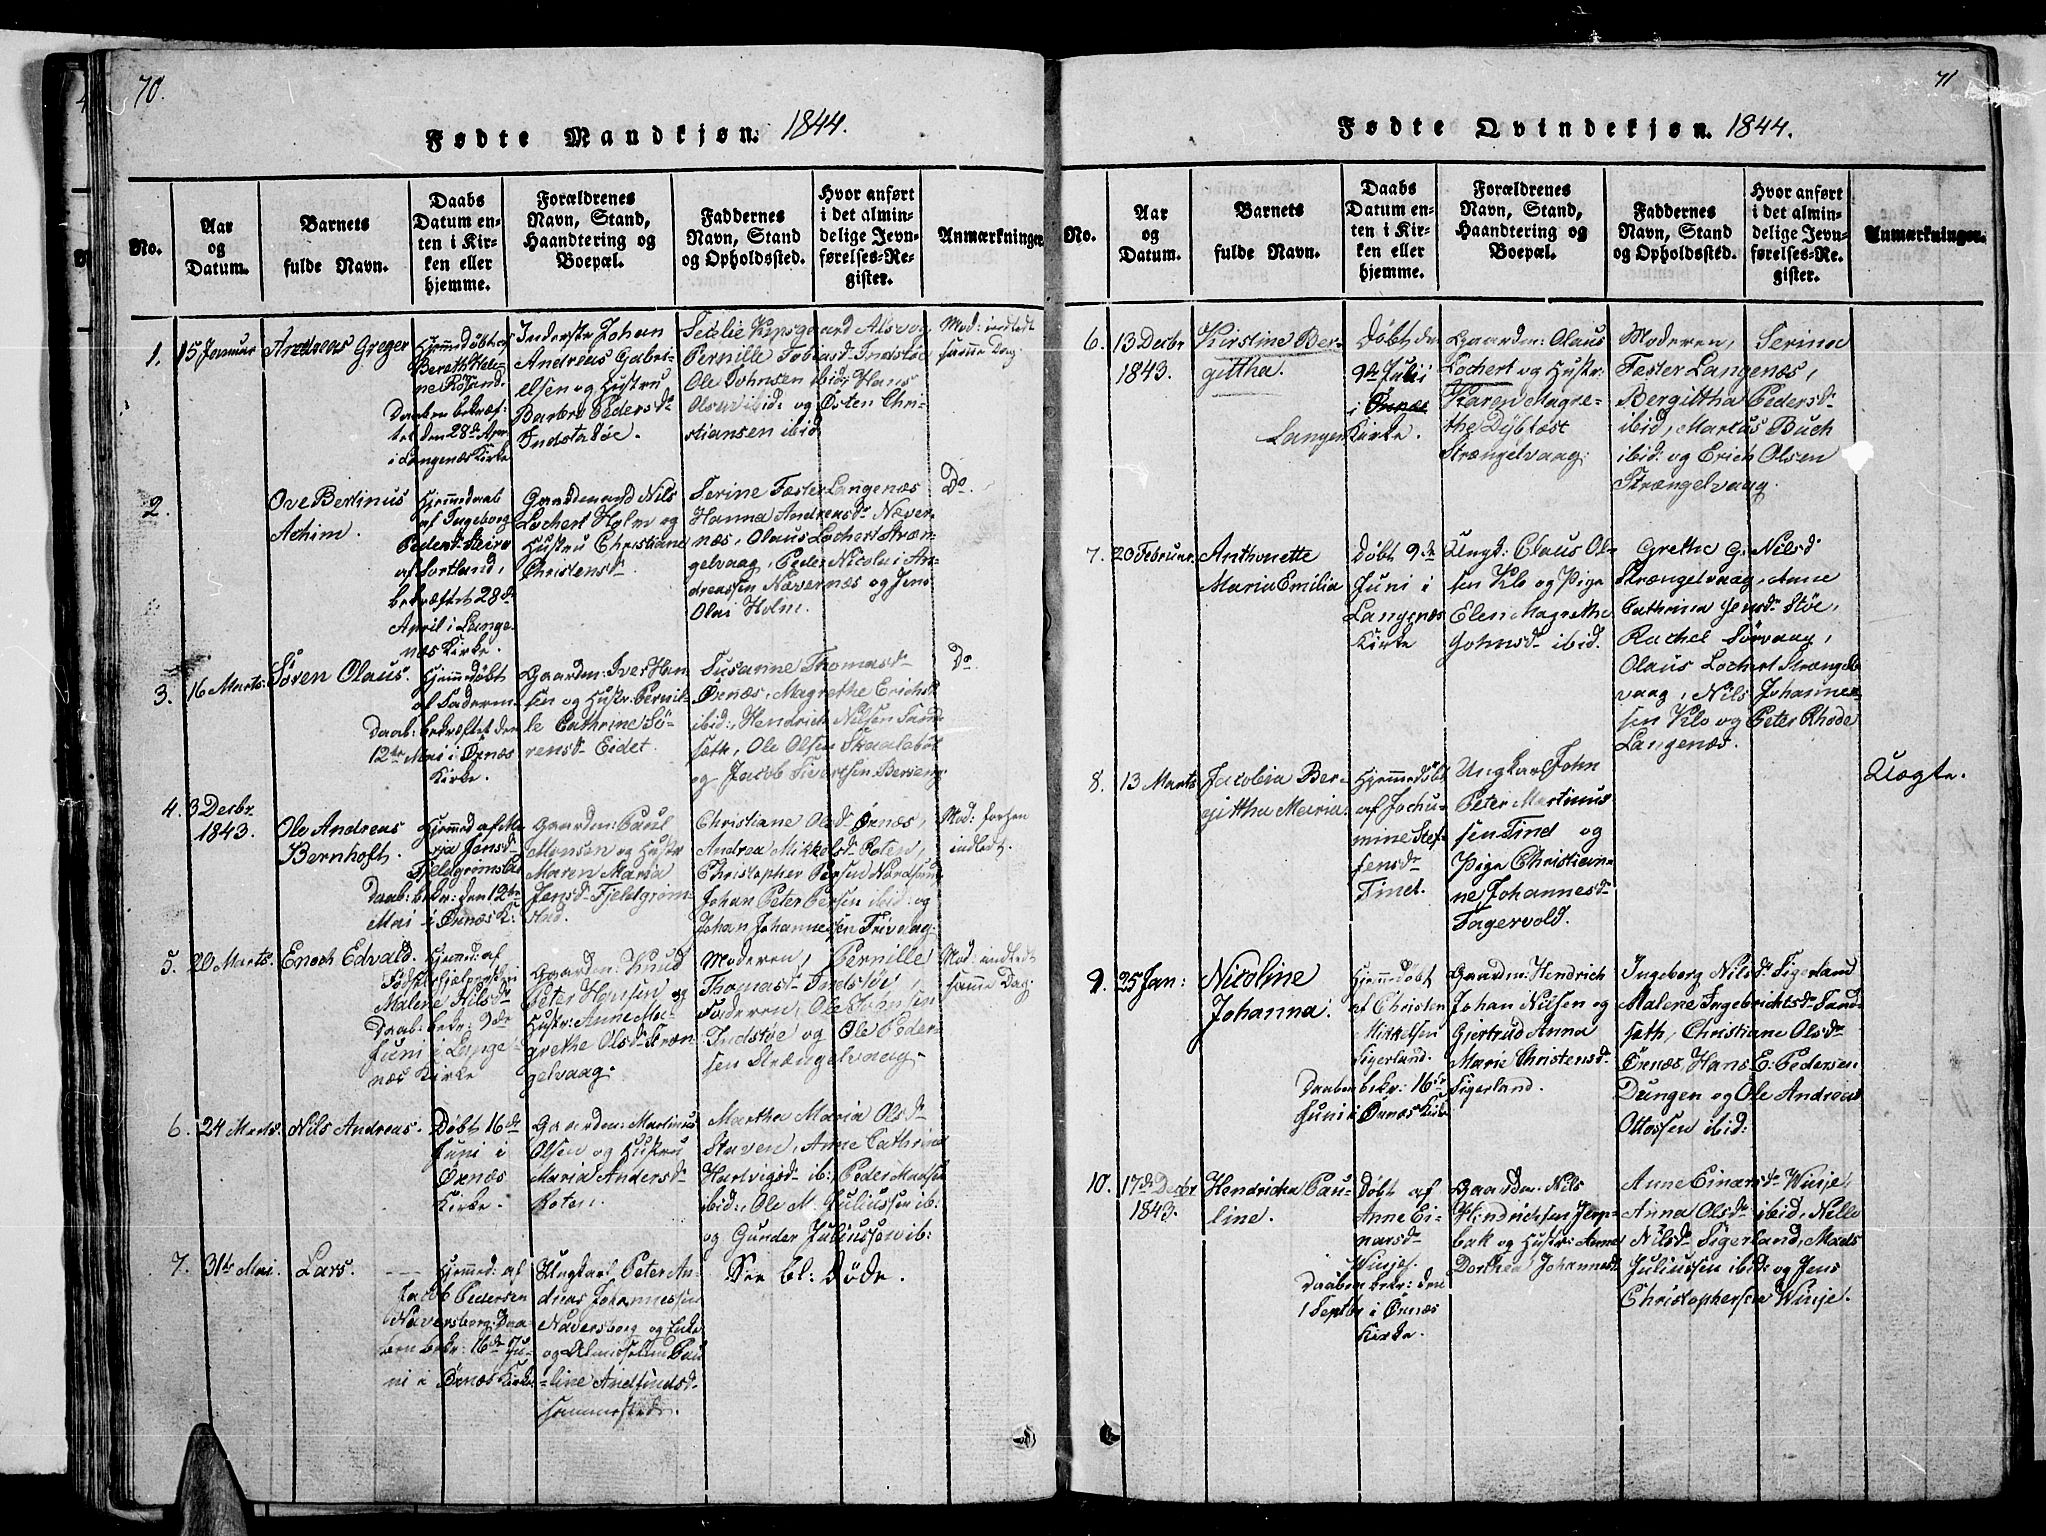 70.
Fødte Mandkjøn. 1844.
No.
Aar
og
Datum.
Barnets
fulde Navn.
Daabs
Datum en-
ten i Kir-
ken eller
hjemme.
Forældrenes
Navn, Stand,
Haandtering og
Boepæl.
Faddernes
Navn, Stand
og Opholdssted.
Hvor anført
i det almin-
delige Jevn-
førelses-Re-
gister.
Anmærkninger.
1.
15 Januar
Andreas Greger
Hjemmedøbt af
Bereth Heli-
ne Röland.
Daaben bekræf-
tet den 28de Apr.
i Langenæs Kirke
Inderste Johan
Andreas Gabri-
elsen og Hustru
Barbro Pedersd.
Indstadøe.
Pernille Tobiasd. Indstøe
Ole Johnsen ibid, Hans
Olsen ibid: og Østen Chri-
stiansen ibid
Mod: indledt
samme Dag.
2.
Ove Bertinus
Achim.
Hjemmedaab
af Ingeborg
Pedersd. Steiro
af Sortland,
bekræftet 28de
April i Lange-
næs Kirke.
Gaardmand Nils
Lochert Holm og
Hustru Christiane
Christensd.
Serine Fæster Langenæs
Hanna Andreasd. Næver-
næs, Olaus Lochert Stræn-
gelvaag, Peder Nicolai An-
dreassen Nævernæs og Jens
Olai Holm.
Do
3.
16 Marts.
Søren Olaus.
Hjemmedøbt
af Faderen.
Daab: bekræftet den
12te Mai i Øxnæs
Kirke.
Gaardm: Iver Han-
sen og Hustr: Pernil-
le Cathrine Sø-
rensd. Eidet.
Susanne Thomasd.
Øxnæs, Magrethe Erichsd.
ibid:, Hendrich Nilsen Sand-
sæth, Ole Olsen Skaalebøl
og Jacob Sivertsen Barseng
Do
4.
3 Decbr.
1843.
Ole Andreas
Bernhoft.
Hjemmed af Ma-
ria Jensd.
Daab: bekr: den 12te
Mai i Øxnæs K:
Gaardm: Paul
Monsen og Hustr
Maren Maria
Jensd. Fjeldgrim-
stad.
Christiane Olsd. Øxnæs,
Andrea Mikkelsd. Roten,
Christopher Persen Nordsund
Johan Peter Persen ibid: og
Johan Johannessen Trivaag.
Mod: forhen
indledt.
5.
20 Marts.
Enoch Edvald.
Hjemmed: af
Fødselshjelpersken
Malene Nilsd.
Daab: bekr: 9de
Juni i Lange-
næs Kirke
Gaardm: Knud
Peter Hansen og
Hustr: Anne Ma-
grethe Olsd. Stræn-
gelvaag.
Moderen, Pernille
Thomasd. Indstøe,
Faderen, Ole Johnsen
Indstøe og Ole Peder-
sen Strængelvaag.
Mod: indledt
samme Dag.
6.
24 Marts.
Nils Andreas.
Døbt 16de
Juni i
Øxnæs
Kirke.
Gaardm: Martinus
Olsen og Hustru
Maria Andersd.
Roten.
Martha Maria Olsd.
Staven, Anne Cathrina
Hartvigsd. ib: Peder Madsen
ibid:, Ole M. Juliussen ib:
og Gunder Juliussen ib:
7.
31te Mai.
Lars.
Hjemmed: af
Jacob Pedersen
Naversborg. Daa-
ben bekr: 16de Ju-
ni i Øxnæs Kirke
Ungkarl Peter An-
dreas Johannessen
Naversborg og Enke
og Almisselem Pau-
line Andfindsd.
sammesteds.
See bl: Døde.
71
Fødte Qvindekjøn. 1844.
No.
Aar
og
Datum.
Barnets
fulde Navn.
Daabs
Datum en-
ten i Kir-
ken eller
hjemme.
Forældrenes
Navn, Stand,
Haandtering og
Boepæl.
Faddernes
Navn, Stand
og Opholdssted.
Hvor anført
i det almin-
delige Jevn-
førelses-Re-
gister.
Anmærkninger.
6.
13 Decbr
1843.
Kirstine Ber-
gittha.
Døbt den
9de Juli
i Øxnæs
Langen Kirke.
Gaardm: Olaus
Lochert og Hustr:
Karen Magre-
the Dybfæst
Strængelvaag.
Moderen, Serina
Fæster Langenæs,
Bergittha Pedersd.
ibid, Marcus Buch
ibid: og Erich Olsen
Strængelvaag.
7.
20 Februar.
Anthonette
Maria Emilia
Døbt 9de
Juni i
Langenæs
Kirke
Ungk: Claus Ol-
sen Klo og Pige
Elen Magrethe
Johnsd. ibid.
Grethe G. Nilsd
Strængelvaag, Anne
Cathrina Jensd. Støe,
Rachel Sørvaag,
Olaus Lochert Strængel-
vaag, Nils Johannes-
sen Klo og Peter Rhode
Langenæs.
8.
13 Marts
Jacobia Ber-
gittha Maria.
Hjemmedøbt
af Jochu-
mine Stef-
fensd.
Tinet.
Ungkarl John
Peter Martinus-
sen Tind og
Pige Christian-
ne Johannesd.
Fagervold.
Uægte.
9.
25 Jan:
Nicoline
Johanna.
Hjemmedøbt
af Christen
Mikkelsen
Sigerland.
Daaben bekr: 16de
Juni i Øxnæs Kirke
Gaardm: Hendrich
Johan Nilsen og
Gjertrud Anna
Marie Christensd.
Sigerland.
Ingeborg Nilsd. Sigerland
Malene Ingebrichtsd. Sand-
sæth, Christiane Olsd.
Øxnæs, Hans E. Pedersen
Dungen og Ole Andreas
Ottossen ibid:
10.
17de Decbr
1843.
Hendricha Pau-
line.
Døbt af
Anne Ei-
narsd.
Winje.
Daaben bekr: den
1 Septbr i Øxnæs
Kirke.
Gaardm: Nils
Hindrichsen Jørn-
bak og Hustr: Anne
Dorthea Johannesd.
Anne Einarsd. Winje,
Anna Olsd. ibid, Nille
Nilsd. Sigerland, Mads
Juliussen ibid: og Jens
Christophersen Winje.